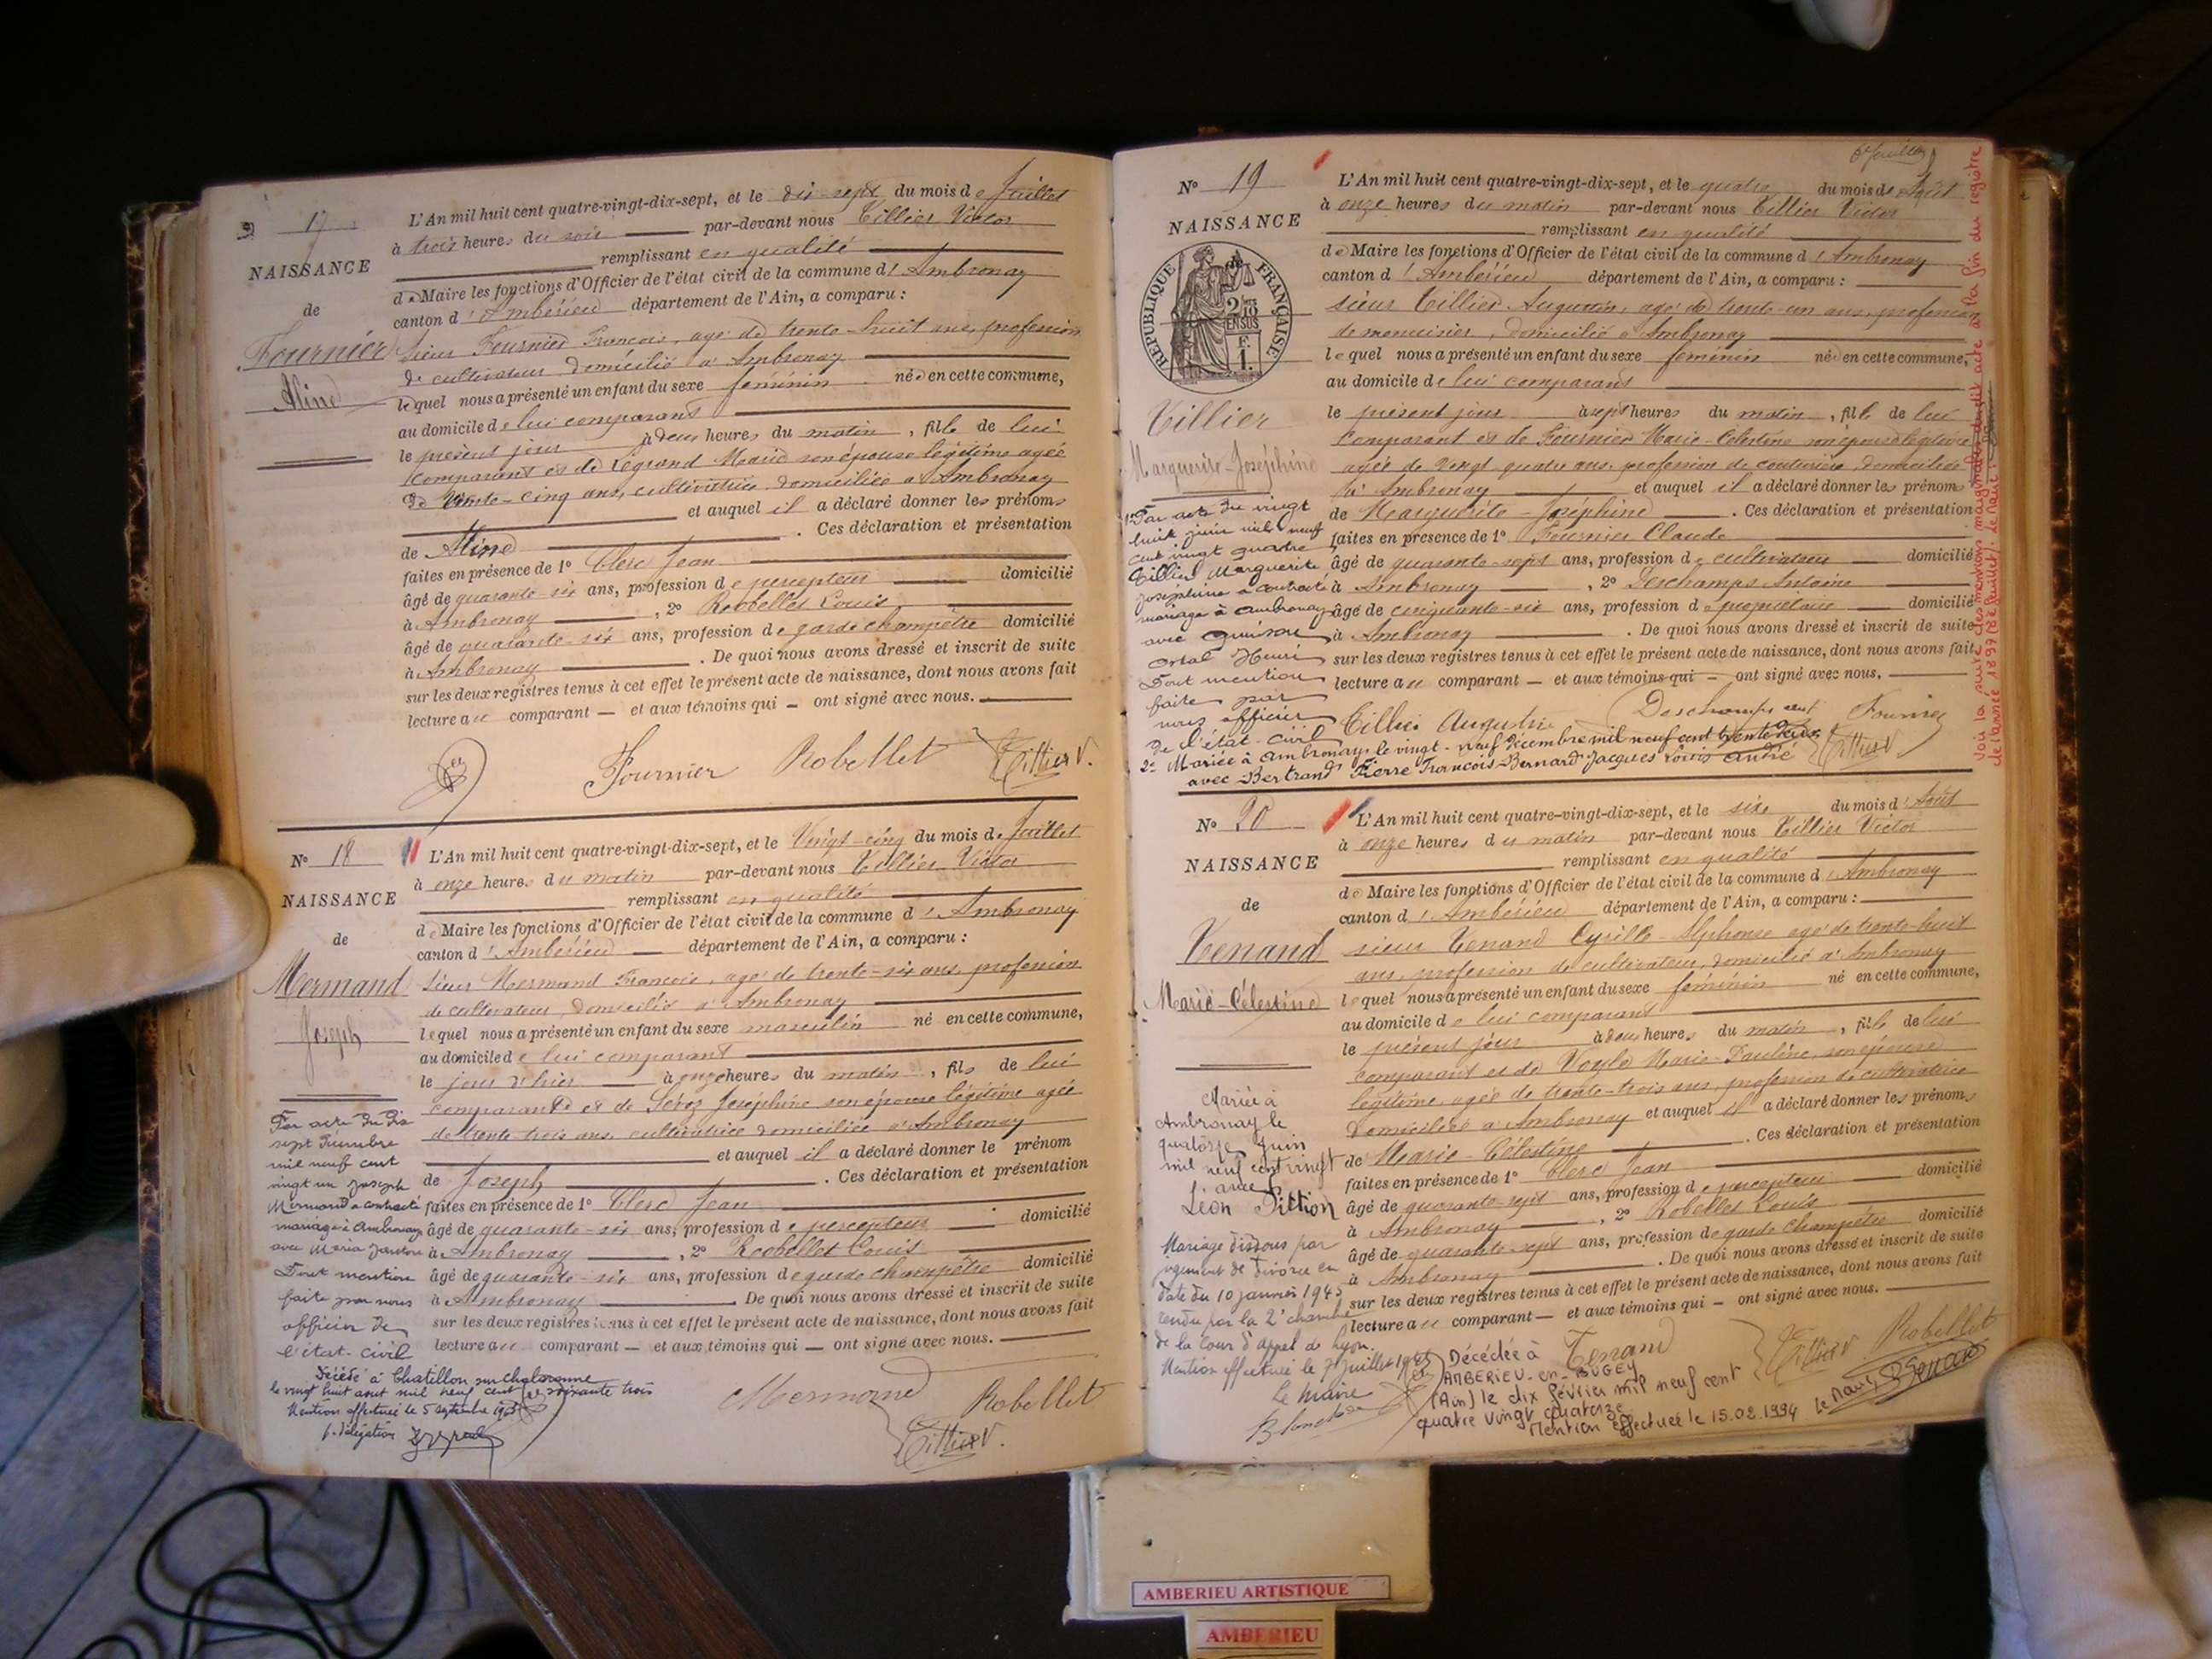 17
NAISSANCE
de
Fournier
Aline
L'An mil huit cent quatre-vingt-dix-sept, et le dix-sept du mois de Juillet
à trois heures du soir par-devant nous Tillier Victor
remplissant en qualité
de Maire les fonctions d'Officier de l'état civil de la commune d'Ambronay
canton d'Ambérieu département de l'Ain, a comparu :
sieur Fournier François, agé de trente-huit ans, profession
de cultivateur domicilié a Ambronay
lequel nous a présenté un enfant du sexe féminin née en cette commune,
au domicile de lui comparant
le présent jour à deux heures du matin, fille de lui
comparant et de Legrand Marie son épouse légitime agée
de trente-cinq ans, cultivatrice domiciliée a Ambronay
et auquel il a déclaré donner les prénoms
de Aline . Ces déclaration et présentation
faites en présence de 1º Clerc Jean
âgé de quarante-six ans, profession de percepteur domicilié
à Ambronay , 2º Robellet Louis
âgé de quarante-six ans, profession de garde champêtre domicilié
à Ambronay . De quoi nous avons dressé et inscrit de suite
sur les deux registres tenus à cet effet le présent acte de naissance, dont nous avons fait
lecture au comparant — et aux témoins qui — ont signé avec nous.
Fournier Robellet Tillier V.
Nº 18
NAISSANCE
de
Mermand
Joseph
L'An mil huit cent quatre-vingt-dix-sept, et le Vingt-cinq du mois de Juillet
à onze heures du matin par-devant nous Tillier Victor
remplissant en qualité
de Maire les fonctions d'Officier de l'état civil de la commune d'Ambronay
canton d'Ambérieu département de l'Ain, a comparu :
sieur Mermand François, agé de trente-six ans, profession
de cultivateur, domicilié a Ambronay
lequel nous a présenté un enfant du sexe masculin né en cette commune,
au domicile de lui comparant
le jour d'hier à onze heures du matin, fils de lui
comparant et de Joséphine son épouse légitime agée
de trente trois ans, cultivatrice domiciliée a Ambronay
et auquel il a déclaré donner le prénom
de Joseph . Ces déclaration et présentation
faites en présence de 1º Clerc Jean
âgé de quarante-six ans, profession de percepteur domicilié
à Ambronay , 2º Robellet Louis
âgé de quarante-six ans, profession de garde champêtre domicilié
à Ambronay . De quoi nous avons dressé et inscrit de suite
sur les deux registres tenus à cet effet le présent acte de naissance, dont nous avons fait
lecture au comparant — et aux témoins qui — ont signé avec nous.
Par acte du dix
sept Décembre
mil neuf cent
vingt un Joseph
Mermand a contracté
mariage à Ambronay
avec Maria
Dont mention
faite par nous
officier de
l'état-civil
Décédé à Chatillon sur Chalaronne
le vingt huit aout mil neuf cent soixante trois
Mention effectuée le 5 septembre 1963
p. délégation
Mermand Robellet
Tillier V.
Nº 19
NAISSANCE
de
RÉPUBLIQUE FRANÇAISE
Tillier
Marguerite-Joséphine
L'An mil huit cent quatre-vingt-dix-sept, et le quatre du mois de Août
à onze heures du matin par-devant nous Tillier Victor
remplissant en qualité
de Maire les fonctions d'Officier de l'état civil de la commune d'Ambronay
canton d'Ambérieu département de l'Ain, a comparu :
sieur Tillier Augustin, agé de trente-un ans, profession
de menuisier, domicilié a Ambronay
lequel nous a présenté un enfant du sexe féminin née en cette commune,
au domicile de lui comparant
le présent jour à sept heures du matin, fille de lui
comparant et de Fournier Marie-Célestine son épouse légitime
agée de vingt-quatre ans, profession de couturière, domiciliée
a Ambronay et auquel il a déclaré donner les prénoms
de Marguerite-Joséphine . Ces déclaration et présentation
faites en présence de 1º Fournier Claude
âgé de quarante-sept ans, profession de cultivateur domicilié
à Ambronay , 2º Deschamps Antoine
âgé de cinquante-six ans, profession de propriétaire domicilié
à Ambronay . De quoi nous avons dressé et inscrit de suite
sur les deux registres tenus à cet effet le présent acte de naissance, dont nous avons fait
lecture au comparant — et aux témoins qui — ont signé avec nous.
1º Par acte du vingt
huit juin mil neuf
cent vingt quatre
Tillier Marguerite
Joséphine a contracté
mariage à Ambronay
avec
Henri
Dont mention
faite par
nous officier
de l'état-civil
Tillier Augustin Deschamps Fournier
Tillier V
2º Mariée à Ambronay, le vingt-neuf décembre mil neuf cent trente
avec Bertrand Pierre François-Bernard Jacques Louis André
Voir la suite des mentions marginales dudit acte à la fin du registre
de l'année 1897
Nº 20
NAISSANCE
de
Tenand
Marie-Célestine
L'An mil huit cent quatre-vingt-dix-sept, et le six du mois d'Août
à onze heures du matin par-devant nous Tillier Victor
remplissant en qualité
de Maire les fonctions d'Officier de l'état civil de la commune d'Ambronay
canton d'Ambérieu département de l'Ain, a comparu :
sieur Tenand Cyrille Alphonse agé de trente-huit
ans, profession de cultivateur, domicilié a Ambronay
lequel nous a présenté un enfant du sexe féminin né en cette commune,
au domicile de lui comparant
le présent jour à deux heures du matin, fille de lui
comparant et de Marie-Pauline, son épouse
légitime, agée de trente-trois ans, profession de cultivatrice
domiciliée a Ambronay et auquel il a déclaré donner les prénoms
de Marie-Célestine . Ces déclaration et présentation
faites en présence de 1º Clerc Jean
âgé de quarante-sept ans, profession de percepteur domicilié
à Ambronay , 2º Robellet Louis
âgé de quarante-sept ans, profession de garde champêtre domicilié
à Ambronay . De quoi nous avons dressé et inscrit de suite
sur les deux registres tenus à cet effet le présent acte de naissance, dont nous avons fait
lecture au comparant — et aux témoins qui — ont signé avec nous.
Mariée à
Ambronay le
quatorze juin
mil neuf cent vingt
avec
Léon Pittion
Mariage dissous par
jugement de divorce en
date du 10 janvier 1945
rendu par la 2e chambre
de la Cour d'appel de Lyon.
Mention effectuée le 7 juillet 1945
Le Maire
Tenand Tillier V Robellet
Décédée à
AMBERIEU-en-BUGEY
(Ain) le dix février mil neuf cent
quatre vingt quatorze
Mention effectuée le 15.02.1994 Le Maire,
AMBERIEU ARTISTIQUE
AMBERIEU